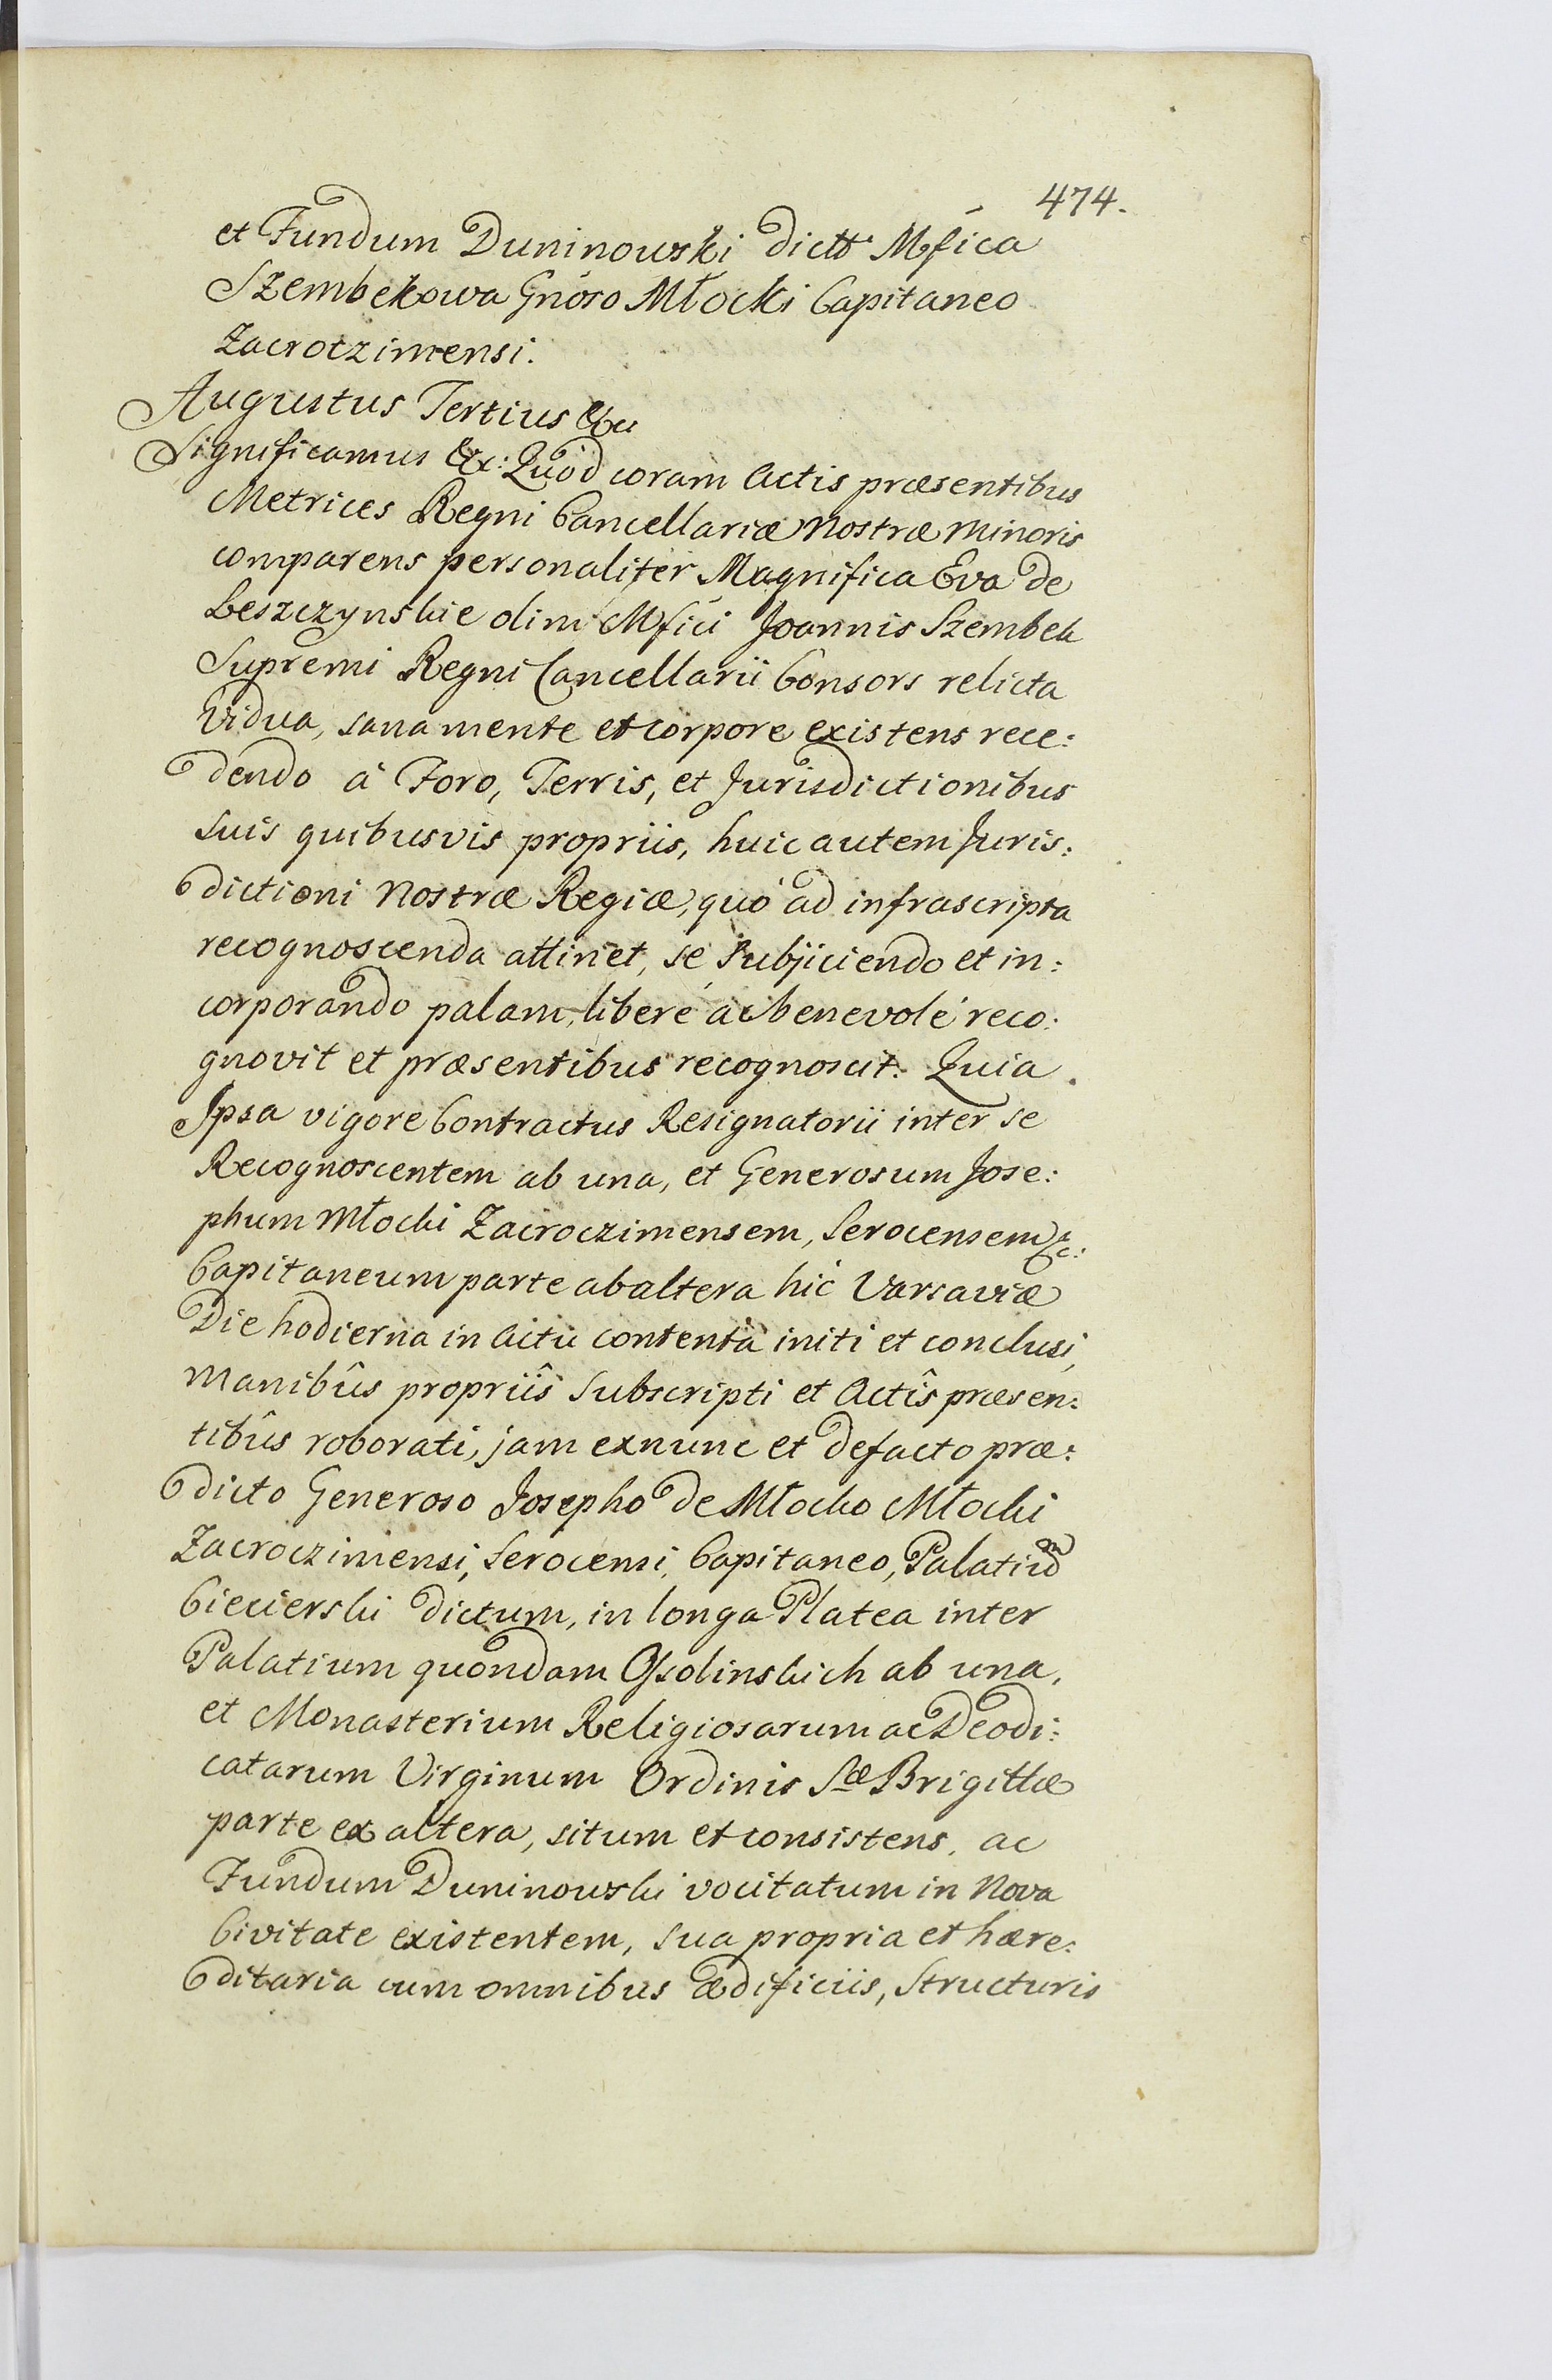 474.
et Fundum Duninowski dictt Mfica
Szembekowa Gnoso Młocki Capitaneo
Zacroczimensi.
Augustus Tertius &c
Significamus &c: Quod coram Actis præsentibus
Metrices Regni Cancellariæ Nostræ Minoris
comparens personaliter Magnifica Eva de
Leszczynskie olim Mfici Joannis Szembek
Supremi Regni Cancellarii Consors relicta
Vidua, sana mente et corpore existens rece:
dendo à Foro, Terris, et Jurisdictionibus
suis quibusvis propriis, huic autem Juris:
dictioni Nostræ Regiæ, quò ad infrascripta
recognoscenda attinet, se subjiciendo et in:
corporando palam, liberè ac benevolè reco:
gnovit et præsentibus recognoscit. Quia
Ipsa vigore Contractus Resignatorii inter se
Recognoscentem ab una, et Generosum Jose:
phum Młocki Zacroczimensem, Serocensem &c:
Capitaneum parte ab altera hic Varsaviæ
Die hodierna in Actu contentà initi et conclusi,
Manibûs propriîs subscripti et Actîs præsen:
tibûs roborati, jam exnunc et defacto præ:
dicto Generoso Josepho de Młocko Młocki
Zacroczimensi, Serocensi, Capitaneo, Palatiu͠m
Ciecierski dictum, in longa Platea inter
Palatium quondam Ossolinskich ab una,
et Monasterium Religiosarum ac Deodi:
catarum Virginum Ordinis Sæ Brigittæ
parte ex altera, situm et consistens, ac
Fundum Duninowski vocitatum in Nova
Civitate existentem, sua propria et hære:
ditaria cum omnibus ædificiis, Structuris